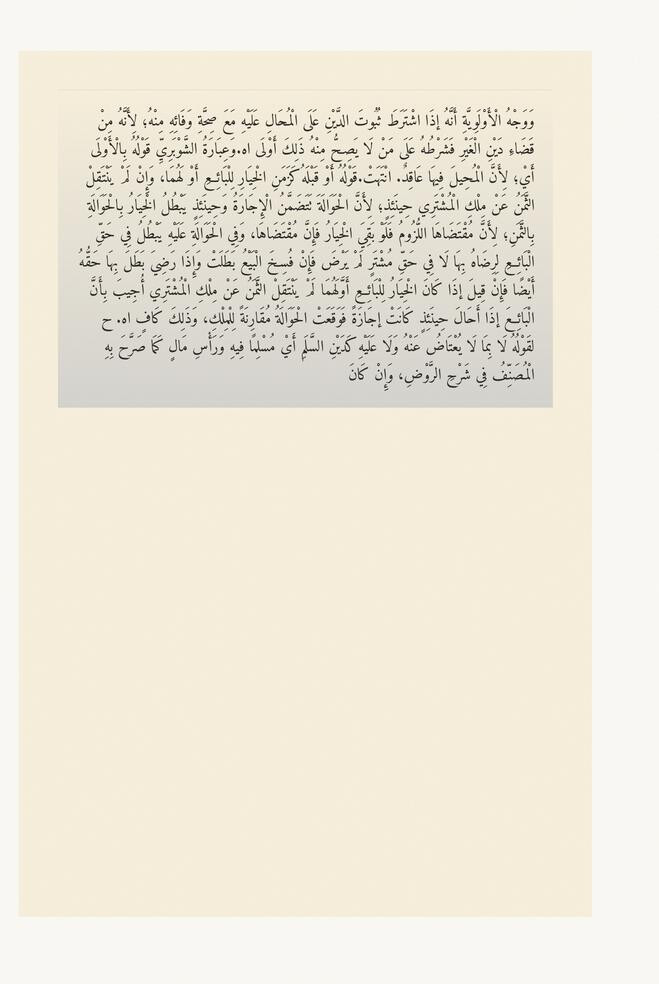 وَوَجْهُ الْأَوْلَوِيَّةِ أَنَّهُ إذَا اشْتَرَطَ ثُبُوتَ الدَّيْنِ عَلَى الْمُحَالِ عَلَيْهِ مَعَ صِحَّةِ وَفَائِهِ مِنْهُ؛ لِأَنَّهُ مِنْ
قَضَاءِ دَيْنِ الْغَيْرِ فَشَرْطُهُ عَلَى مَنْ لَا يَصِحُّ مِنْهُ ذَلِكَ أَوْلَى اه.وعِبَارَةُ الشَّوْبَرِيِّ قَوْلُهُ بِالْأَوْلَى
أَيْ؛ لِأَنَّ الْمُحِيلَ فِيهَا عَاقِدٌ. انْتَهَتْ.قَوْلُهُ أَوْ قَبْلَهُ كَزَمَنِ الْخِيَارِ لِلْبَائِعِ أَوْ لَهُمَا، وَإِنْ لَمْ يَنْتَقِلْ
الثَّمَنُ عَنْ مِلْكِ الْمُشْتَرِي حِينَئِذٍ؛ لِأَنَّ الْحَوَالَةَ تَتَضَمَّنُ الْإِجَازَةَ وَحِينَئِذٍ يَبْطُلُ الْخِيَارُ بِالْحَوَالَةِ
بِالثَّمَنِ؛ لِأَنَّ مُقْتَضَاهَا اللُّزُومُ فَلَوْ بَقِيَ الْخِيَارُ فَإِنَّ مُقْتَضَاهَا، وَفِي الْحَوَالَةِ عَلَيْهِ يَبْطُلُ فِي حَقِّ
الْبَائِعِ لِرِضَاهُ بِهَا لَا فِي حَقِّ مُشْتَرٍ لَمْ يَرْضَ فَإِنْ فُسِخَ الْبَيْعُ بَطَلَتْ وَإِذَا رَضِيَ بَطَلَ بِهَا حَقُّهُ
أَيْضًا فَإِنْ قِيلَ إذَا كَانَ الْخِيَارُ لِلْبَائِعِ أَوَّلَهُمَا لَمْ يَنْتَقِلْ الثَّمَنُ عَنْ مِلْكِ الْمُشْتَرِي أُجِيبَ بِأَنَّ
الْبَائِعَ إذَا أَحَالَ حِينَئِذٍ كَانَتْ إجَازَةً فَوَقَعَتْ الْحَوَالَةُ مُقَارِنَةً لِلْمِلْكِ، وَذَلِكَ كَافٍ اه. ح
لقَوْلُهُ لَا بِمَا لَا يُعْتَاضُ عَنْهُ وَلَا عَلَيْهِ كَدَيْنِ السَّلَمِ أَيْ مُسْلَمًا فِيهِ وَرَأْسِ مَالٍ كَمَا صَرَّحَ بِهِ
الْمُصَنِّفُ فِي شَرْحِ الرَّوْضِ، وَإِنْ كَانَ